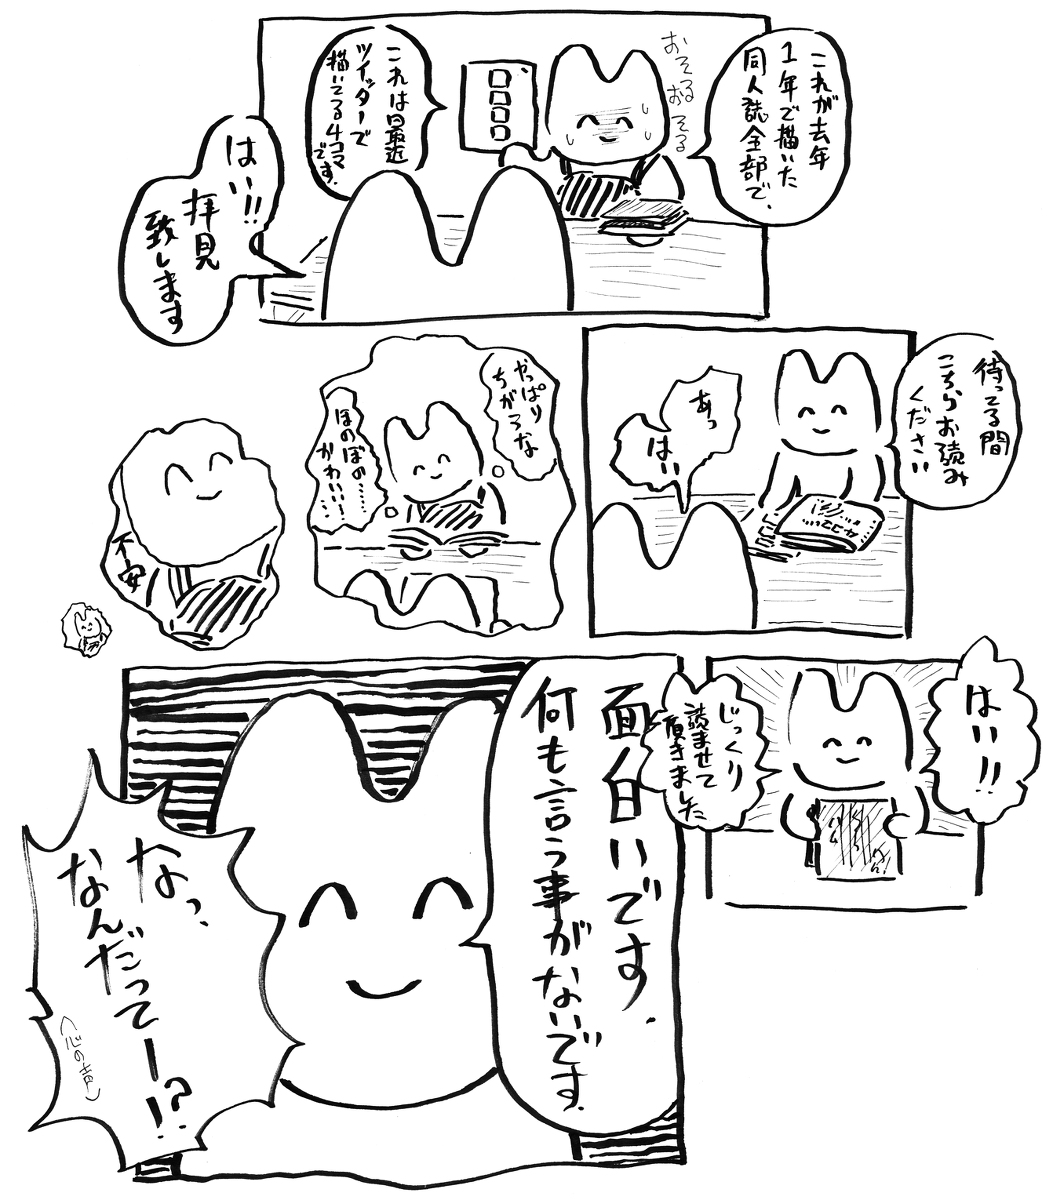 これが去年
1年で描いた
同人誌全部で、
おそるおそる
これは最近
ツイッターで
描いてる4コマ
です。
はい!!
拝見
致します
待ってる間
こちらお読み
ください
あっ
はい
やっぱり
ちがうな
ほのぼの……
かわいい…
不安
はい!!
じっくり
読ませて
頂きました
面白いです。
何も言う事がないです。
なっ、
なんだってー!?
(心の声)